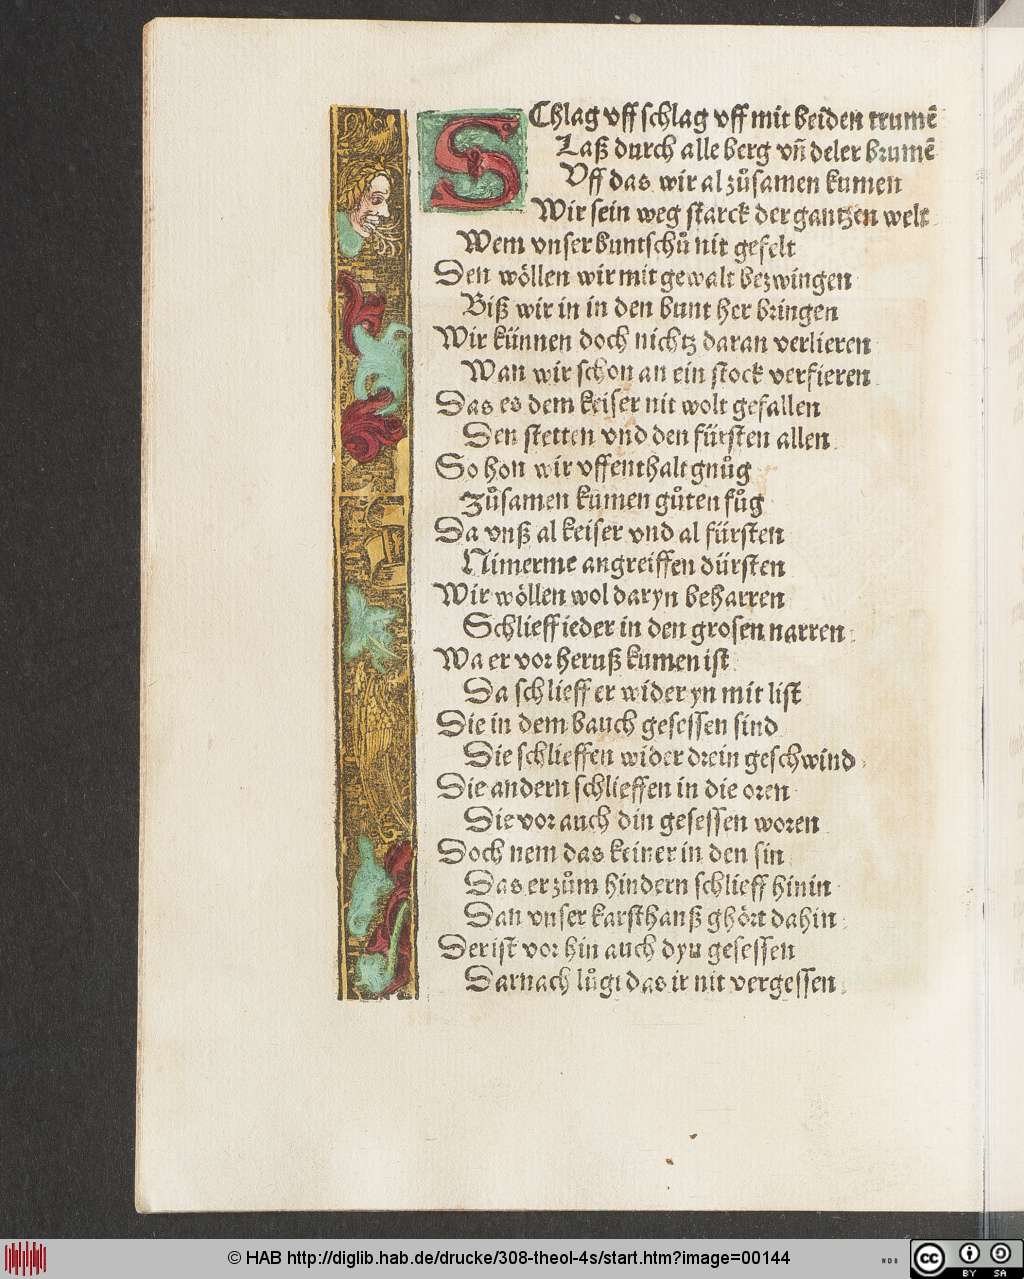 SChlag vff schlag vff mit beiden trumē
Laß durch alle berg vn̄ deler brumē
Vff das wir al zůsamen kumen
Wir sein weg starck der gantzen welt
Wem vnser buntschů nit gefelt
Den wöllen wir mit gewalt bezwingen
Biß wir in in den bunt her bringen
Wir künnen doch nichtz daran verlieren
Wan wir schon an ein stock verfieren
Das es dem keiser nit wolt gefallen
Den stetten vnd den fürsten allen
So hon wir vffenthalt gnůg
Zůsamen kumen gůten fůg
Da vnß al keiser vnd al fürsten
Nimerme angreiffen dürsten
Wir wöllen wol daryn beharren
Schlieff ieder in den grosen narren
Wa er vor heruß kumen ist
Da schlieff er wider yn mit list
Die in dem bauch gesessen sind
Die schlieffen wider drein geschwind
Die andern schlieffen in die oren
Die vor auch din gesessen woren
Doch nem das keiner in den sin
Das er zům hindern schlieff hinin
Dan vnser karsthanß ghört dahin
Der ist vor hin auch dyn gesessen
Darnach lůgt das ir nit vergessen
© HAB http://diglib.hab.de/drucke/308-theol-4s/start.htm?image=00144
WDB
cc
BY SA